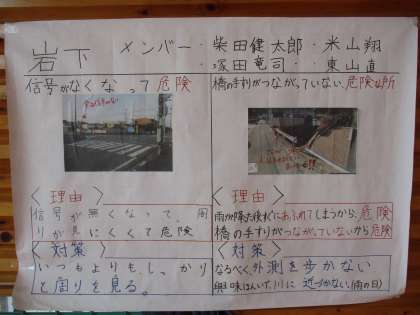 岩下 メンバー・柴田健太郎・米山翔
・塚田竜司・東山直
信号がなくなって危険
橋の手すりがつながっていない危険な所
<理由>
信号が無くなって、周
りが見にくくて危険
<対策>
いつもよりも、しっかり
と周りを見る。
<理由>
雨が降た後すぐにあふれてしまうから、危険
橋の手すりがつながっていないから危険
<対策>
なるべく、外測を歩かない
興味はんいで、川に近づかない(雨の日)